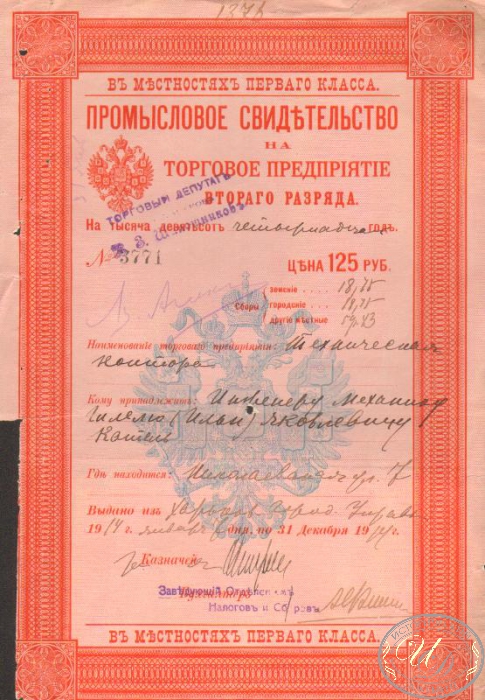 1371
ВЪ МѢСТНОСТЯХЪ ПЕРВАГО КЛАССА.
ПРОМЫСЛОВОЕ СВИДѢТЕЛЬСТВО
НА
ТОРГОВОЕ ПРЕДПРІЯТІЕ
ВТОРАГО РАЗРЯДА.
ТОРГОВЫЙ ДЕПУТАТЪ
На тысяча девятьсотъ четырнадцат годъ.
№ 3771
ЦѢНА 125 РУБ.
Сборы
земскіе .... 18,75
городскіе ... 18,75
другіе мѣстные
Наименованіе торговаго предпріятія: Техническая
контора
Кому принадлежитъ: Инженеру Механику
Гилелю (Илья) Яковлевичу
Гдѣ находится: Николаевская ул. 7
Выдано изъ Город. Управы
1914 г. январь дня, по 31 Декабря 1914 г.
Казначей
Завѣдующій Отдѣленіемъ
Бухгалтеръ
Налоговъ и Сборовъ
ВЪ МѢСТНОСТЯХЪ ПЕРВАГО КЛАССА.